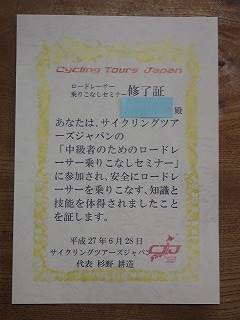 Cycling Tours Japan
ロードレーサー
乗りこなしセミナー 修了証
殿
あなたは、サイクリングツア
ーズジャパンの
「中級者のためのロードレ
ーサー乗りこなしセミナー」
に参加され、安全にロードレ
ーサーを乗りこなす、知識と
技能を体得されましたこと
を証します。
平成27年6月28日
サイクリングツアーズジャパン
代表 杉野 耕造